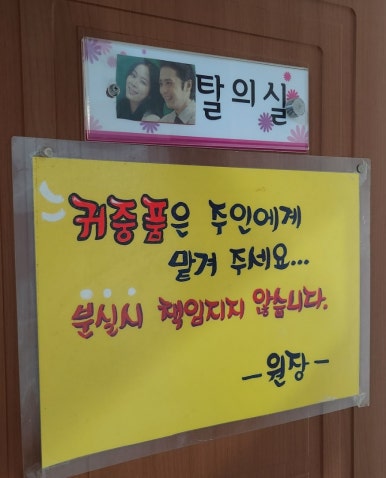 탈의실
귀중품은 주인에게
맡겨 주세요...
분실시 책임지지 않습니다.
- 원장 -